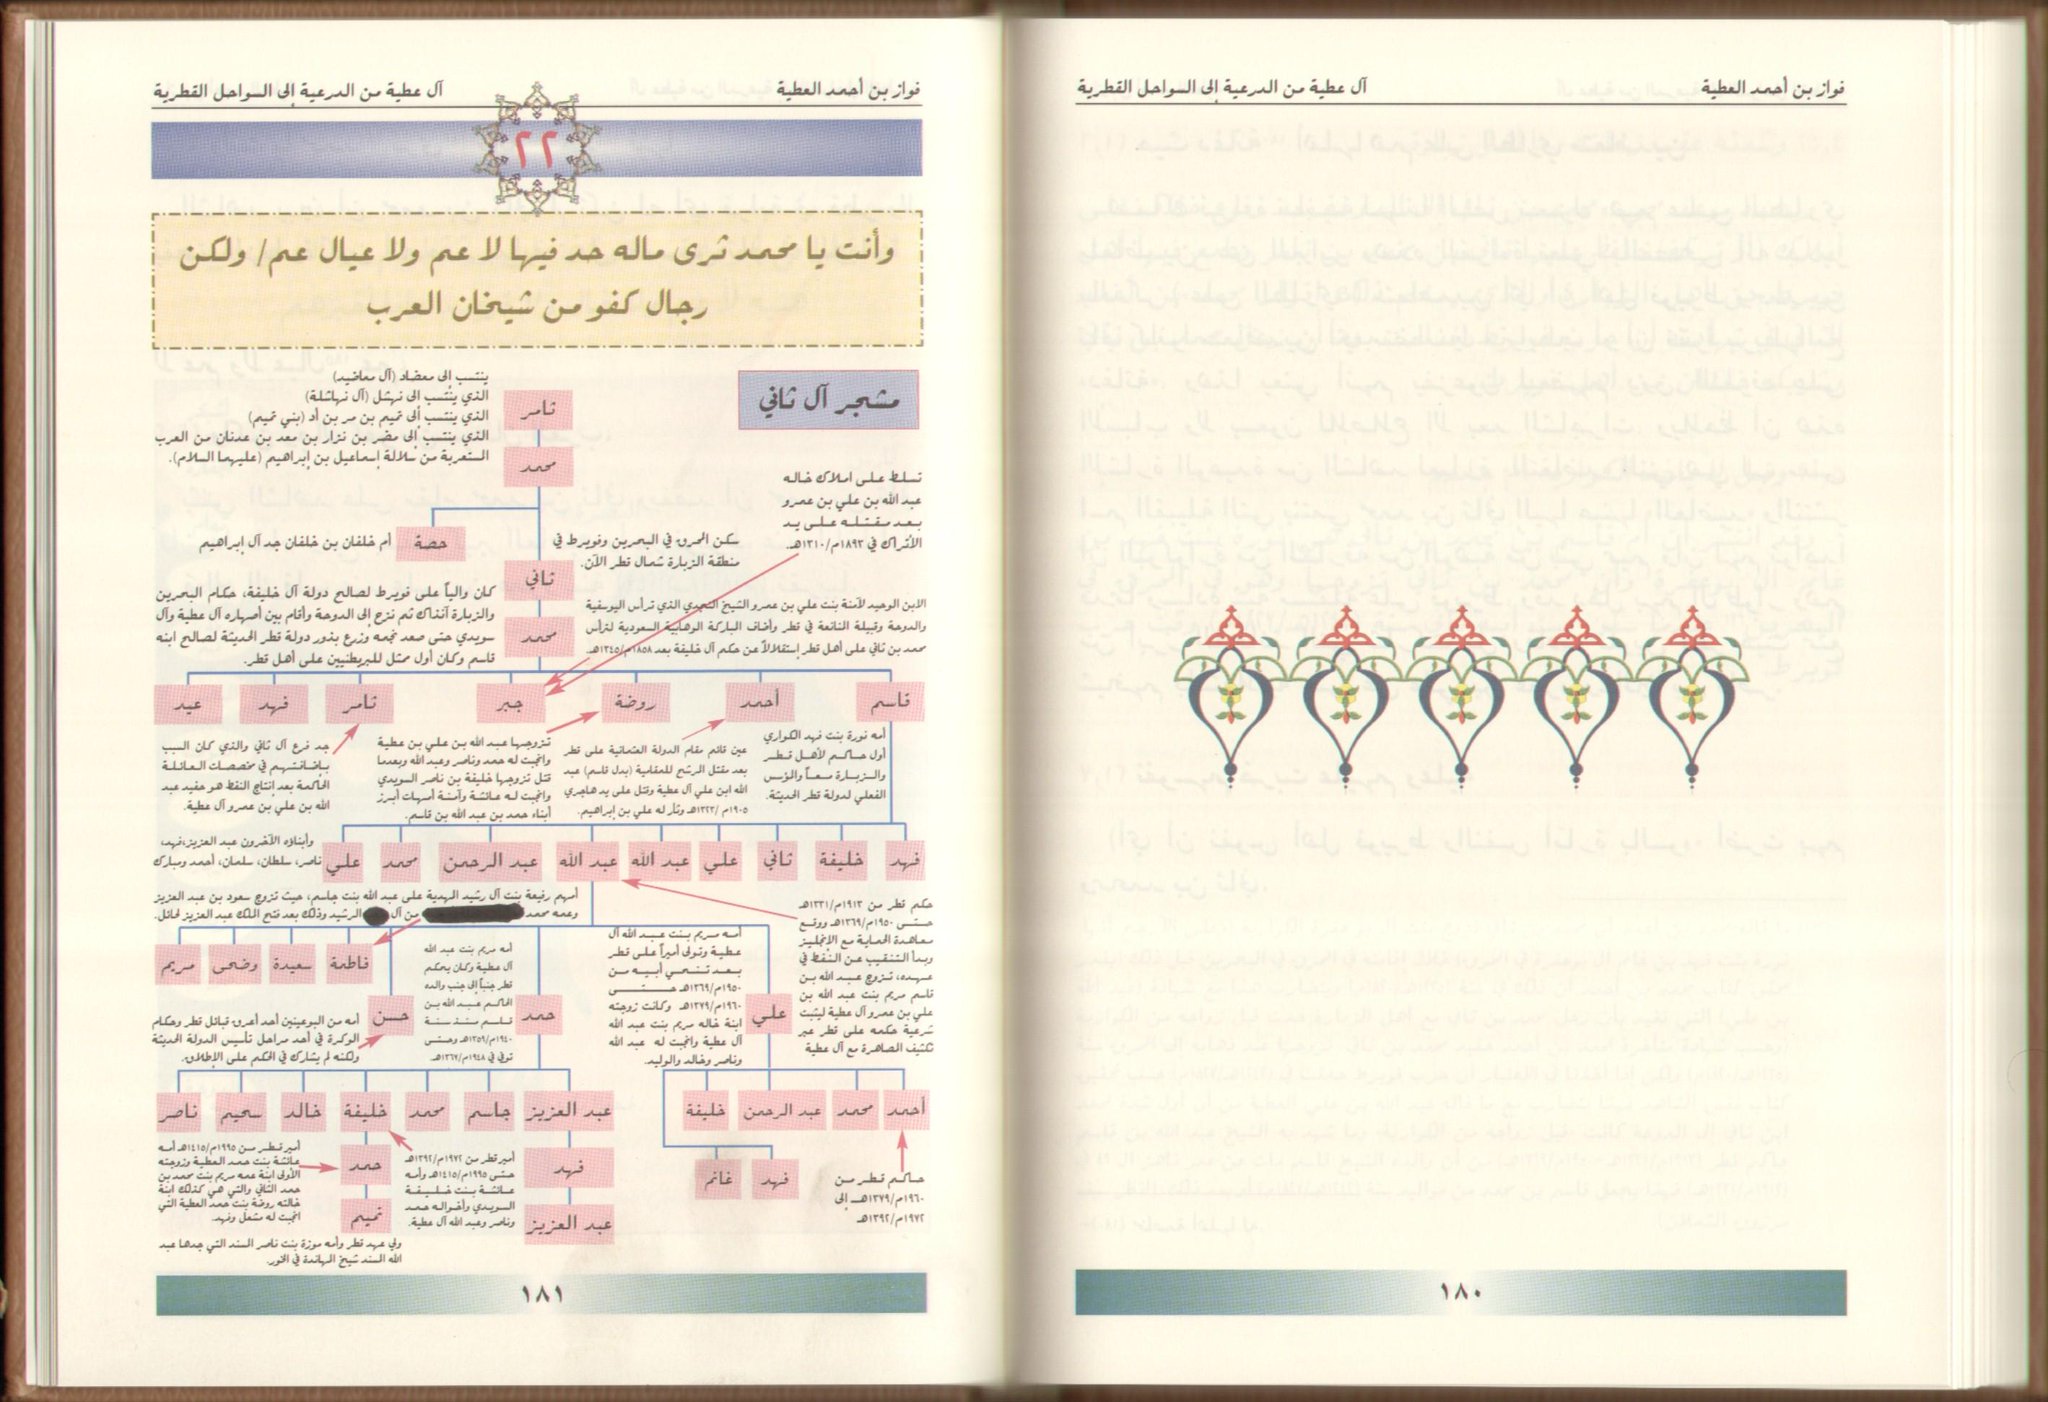 فواز بن أحمد العطية
آل عطية من الدرعية إلى السواحل القطرية
١٨٠
فواز بن أحمد العطية
آل عطية من الدرعية إلى السواحل القطرية
٢٢
وأنت يا محمد ثرى ماله حد فيها لا عم ولا عيال عم/ ولكن
رجال كفو من شيخان العرب
مشجر آل ثاني
ثامر
ينتسب إلى معضاد (آل معاضيد)
الذي ينتسب إلى نهشل (آل نهاشلة)
الذي ينتسب إلى تميم بن مر بن أد (بني تميم)
الذي ينتسب إلى مضر بن نزار بن معد بن عدنان من العرب
المستعربة من سلالة إسماعيل بن إبراهيم (عليهما السلام).
محمد
تسلط على املاك خاله
عبد الله بن علي بن عمرو
بعد مقتله على يد
الأتراك في ١٨٩٣م/١٣١٠هـ.
حصة
أم خلفان بن خلفان جد آل إبراهيم
سكن المحرق في البحرين وفويرط في
منطقة الزبارة شمال قطر الآن.
ثاني
كان والياً على فويرط لصالح دولة آل خليفة، حكام البحرين
والزبارة آنذاك ثم نزح إلى الدوحة وأقام بين أصهاره آل عطية وآل
سويدي حتى صعد نجمه وزرع بذور دولة قطر الحديثة لصالح ابنه
قاسم وكان أول ممثل للبريطنيين على أهل قطر.
محمد
الابن الوحيد لآمنة بنت علي بن عمرو الشيخ النجدي الذي ترأس اليوسفية
والدوحة وقبيلة النائعة في قطر وأضاف المباركة الوهابية السعودية لترأس
محمد بن ثاني على أهل قطر إستقلالاً عن حكم آل خليفة بعد ١٨٥٨م/١٣٤٥هـ.
قاسم
أحمد
روضة
جبر
ثامر
فهد
عيد
أمه نورة بنت فهد الكواري
أول حاكم لأهل قطر
والزبارة معاً والمؤسس
الفعلي لدولة قطر الحديثة.
عين قائم مقام الدولة العثمانية على قطر
بعد مقتل المرشح للمقامية (بدل قاسم) عبد
الله ابن علي آل عطية وقتل على يد هاجري
١٩٠٥م /١٣٢٣هـ وثأر له علي بن إبراهيم.
تزوجها عبد الله بن علي بن عطية
وانجبت له حمد وناصر وعبد الله وبعدما
قتل تزوجها خليفة بن ناصر السويدي
وانجبت له عائشة وآمنة أمهات أبرز
أبناء حمد بن عبد الله بن قاسم.
جد فرع آل ثاني والذي كان السبب
بإضافتهم في مخصصات العائلة
الحاكمة بعد إنتاج النفط هو حفيد عبد
الله بن علي بن عمرو آل عطية.
فهد
خليفة
ثاني
علي
عبد الله
عبد الله
عبد الرحمن
محمد
علي
وأبناؤه الآخرون عبد العزيز،فهد،
ناصر، سلطان، سلمان، أحمد ومبارك
أمهم رفيعة بنت آل رشيد المهدية على عبد الله بنت جاسم، حيث تزوج سعود بن عبد العزيز
وعمه محمد من آل الرشيد وذلك بعد فتح الملك عبد العزيز لحائل.
حكم قطر من ١٩١٣م/١٣٣١هـ
حتى ١٩٥٠م/١٣٦٩هـ ووقع
معاهدة الحماية مع الإنجليز
وبدأ التنقيب عن النفط في
عهده، تزوج عبد الله بن
قاسم مريم بنت عبد الله بن
علي بن عمرو آل عطية ليثبت
شرعية حكمه على قطر عبر
تكثيف المصاهرة مع آل عطية
علي
أمه مريم بنت عبد الله آل
عطية وتولى أميراً على قطر
بعد تنحي أبيه من
١٩٥٠م/١٣٦٩هـ حتى
١٩٦٠م/١٣٧٩هـ وكانت زوجته
ابنة خاله مريم بنت عبد الله
آل عطية وانجبت له عبد الله
وناصر وخالد والوليد.
حمد
أمه مريم بنت عبد الله
آل عطية وكان يحكم
قطر جنباً إلى جنب والده
الحاكم عبد الله بن
قاسم منذ سنة
١٩٤٠م/١٣٥٩هـ وحتى
توفي في ١٩٤٨م/١٣٦٧هـ.
حسن
أمه من البوعينين أحد أعرق قبائل قطر وحكام
الوكرة في أحد مراحل تأسيس الدولة الحديثة
ولكنه لم يشارك في الحكم على الإطلاق.
فاطمة
سعيدة
وضحى
مريم
أحمد
محمد
عبد الرحمن
خليفة
فهد
غانم
حاكم قطر من
١٩٦٠م/١٣٧٩هـ إلى
١٩٧٢م/١٣٩٢هـ
عبد العزيز
جاسم
محمد
خليفة
خالد
سحيم
ناصر
فهد
عبد العزيز
أمير قطر من ١٩٧٢م/١٣٩٢هـ
حتى ١٩٩٥م/١٤١٥هـ وأمه
عائشة بنت خليفة
السويدي وأخواله حمد
وناصر وعبد الله آل عطية.
حمد
أمير قطر من ١٩٩٥م/١٤١٥هـ أمه
عائشة بنت حمد العطية وزوجته
الأولى ابنة عمه مريم بنت محمد بن
حمد الثاني والتي هي كذلك ابنة
خالته روضة بنت حمد العطية التي
انجبت له مشعل وفهد.
تميم
ولي عهد قطر وأمه موزة بنت ناصر المسند التي جدها عبد
الله المسند شيخ المهاندة في الخور.
١٨١